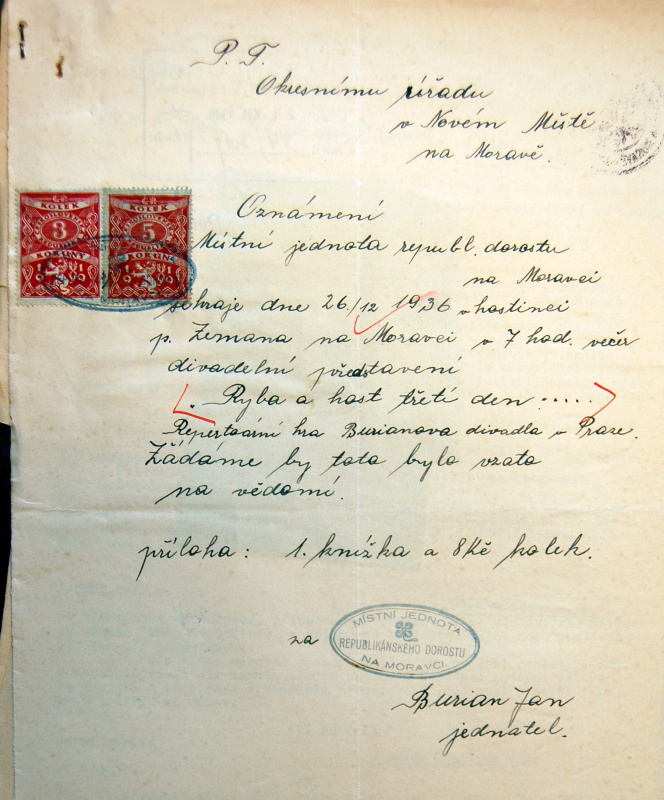 P. T.
Okresnímu úřadu
v Novém Městě
na Moravě.
Oznámení
Místní jednota republ. dorostu
na Moravci
sehraje dne 26./12 1936 v hostinci
p. Zemana na Moravci v 7 hod. večer
divadelní představení
„Ryba a host třetí den .....
Repertoární hra Burianova divadla v Praze.
Žádáme by toto bylo vzato
na vědomí.
příloha: 1. knížka a 8 Kč kolek.
KOLEK
3
KORUNY
1919
KOLEK
5
KORUN
1919
za
MÍSTNÍ JEDNOTA
REPUBLIKÁNSKÉHO DOROSTU
NA MORAVCI
Burian Jan
jednatel.